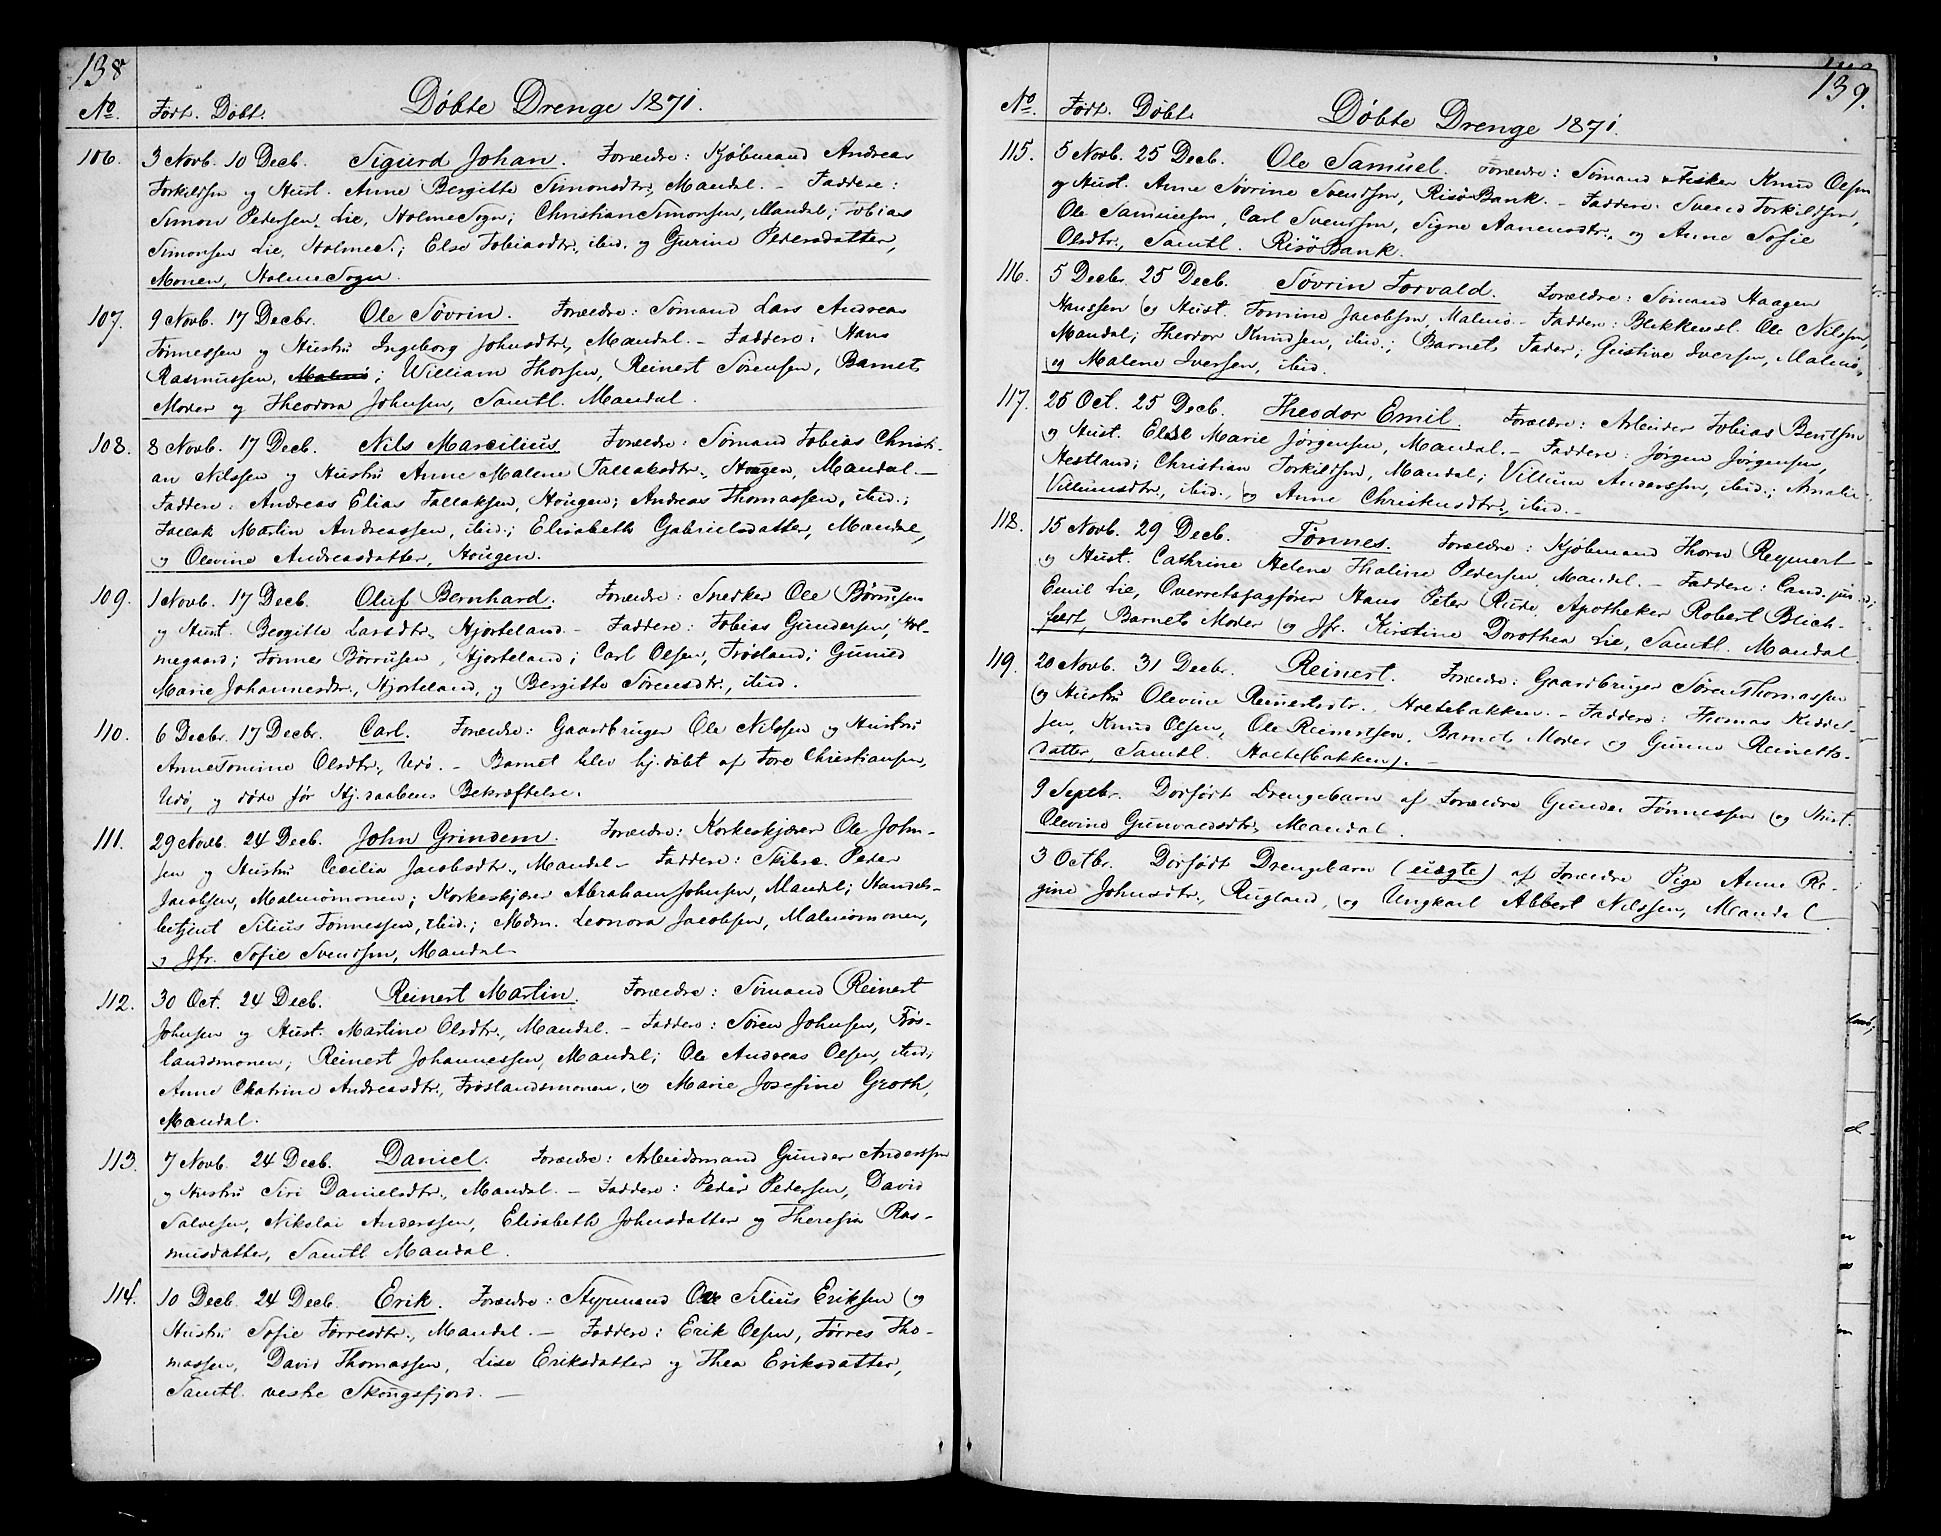 138
No. Födt. Döbt. Döbte Drenge 1871.
106. 3 Novb. 10 Decb. Sigurd Johan. Forældre: Kjöbmand Andreas
Torkildsen og Hust. Anne Bergitte Simonsdtr., Mandal. – Faddere:
Simon Pedersen Lie, HolmeSogn; Christian Simonsen, Mandal; Tobias
Simonsen Lie, HolmeS.; Else Tobiasdtr., ibid. og Gurine Pedersdatter,
Monen, HolmeSogn.
107. 9 Novb. 17 Decbr. Ole Sövrin. Forældre: Sömand Lars Andreas
Tönnessen og Hustru Ingeborg Johnsdtr., Mandal. – Faddere: Hans
Rasmussen, Malmö; William Thorsen, Reinert Sörensen, Barnets
Moder og Theodora Johnsen, Samtl. Mandal.
108. 8 Novb. 17 Decb. Nils Marcilius. Forældre: Sömand Tobias Christi-
an Nilssen og Hustru Anne Malene Tallaksdtr., Hougen, Mandal. –
Faddere: Andreas Elias Tallaksen, Hougen; Andreas Thomassen, ibid.;
Tallak Martin Andreassen, ibid.; Elisabeth Gabrielsdatter, Mandal,
og Olevine Andreasdatter, Hougen.
109. 1 Novb. 17 Decb. Oluf Bernhard. Forældre: Snedker Ole Börrusen
og Hust. Bergitte Larsdtr., Hjorteland. – Faddere: Tobias Gundersen, Hol-
megaard; Tönnes Börrusen, Hjorteland; Carl Olsen, Fröisland; Gunild
Marie Johannesdtr., Hjorteland, og Bergitte Sörensdtr., ibid.
110. 6 Decbr. 17 Decbr. Carl. Forældre: Gaardbruger Ole Nilssen og Hustru
Anne Tomine Olsdtr., Udö. – Barnet blev hj.döbt af Tore Christiansen,
Udö, og döde för Hj.daabens Bekræftelse.
111. 29 Novb. 24 Decb. John Grindem. Forældre: Korkeskjærer Ole John-
sen og Hustru Cecilia Jacobsdtr., Mandal – Faddere: Skibsc. Peder
Jacobsen, Malmömonen; Korkeskjærer Abraham Johnsen, Mandal; Handels-
betjent Silius Tönnessen, ibid.; Mdm. Leonora Jacobsen, Malmömonen,
og Jfr. Sofie Svendsen, Mandal
112. 30 Oct. 24 Decb. Reinert Martin. Forældre: Sömand Reinert
Johnsen og Hust. Martine Olsdtr., Mandal. – Faddere: Sören Johnsen, Frös-
landsmonen; Reinert Johannessen, Mandal; Ole Andreas Olsen, ibid;
Anne Chatrine Andreasdtr., Fröslandsmonen, og Marie Josefine Groth,
Mandal.
113. 7 Novb. 24 Decb. Daniel. Forældre: Arbeidsmand Gunder Anderssen
og Hustru Siri Danielsdtr., Mandal. – Faddere: Peder Pedersen, David
Salvesen, Nikolai Anderssen, Elisabeth Johnsdatter og Theresia Ras-
musdatter, Samtl Mandal.
114. 10 Decb. 24 Decb. Erik. Forældre: Styrmand Ole Silius Eriksen og
Hustru Sofie Törresdtr., Mandal. – Faddere: Erik Olsen, Törres Tho-
massen, David Thomassen, Lise Eriksdatter og Thea Eriksdatter,
Samtl. vestre Skougsfjord. –
139.
No. Födt. Döbt. Döbte Drenge 1871.
115. 5 Novb. 25 Decb. Ole Samuel. Forældre: Sömand & Fisker Knud Olsen
og Hust. Anne Sövrine Svendsen, RisöBank. – Faddere: Svend Torkildsen,
Ole Samuelsen, Carl Svendsen, Signe Aanensdtr., og Anne Sofie
Olsdtr., Samtl. RisöBank.
116. 5 Decbr. 25 Decb. Sövrin Torvald. Forældre: Sömand Haagen
Hanssen og Hust. Tomine Jacobsen, Malmö – Faddere: Blikkensl. Ole Nilssen,
Mandal; Theodor Knudsen, ibid.; Barnets Fader; Gustive Iversen, Malmö,
og Malene Iversen, ibid.
117. 25 Oct. 25 Decb. Theodor Emil. Forældre: Arbeider Tobias Bentsen
og Hust. Else Marie Jörgensen, Mandal. – Faddere: Jörgen Jörgensen,
Hestland; Christian Torkildsen, Mandal; Villum Anderssen, ibid.; Amalie
Villumsdtr., ibid., og Anne Christensdtr., ibid. –
118. 15 Novb. 29 Decb. Tönnes. Forældre: Kjöbmand Thorn Reymert
og Hust. Cathrine Helene Thaline Pedersen, Mandal. – Faddere: Cand. juris
Emil Lie, Overretssagförer Hans Peter Rude, Apotheker Robert Blich-
fert, Barnets Moder og Jfr. Kirstine Dorothea Lie, Samtl. Mandal.
119. 20 Novb. 31 Decbr. Reinert. Forældre: Gaardbruger Sören Thomassen
og Hustru Olevine Reinertsdtr., Holtebakken. – Faddere: Thomas Keddel-
sen, Knud Olsen, Ole Reinertsen, Barnets Moder og Gunne Reinerts-
datter, Samtl. Holtebakken. –
9 Septbr. Dödfödt Drengebarn af Forældre Gunder Tönnessen og Hust.
Olevine Gunvaldsdtr., Mandal.
3 Octbr. Dödfödt Drengebarn (uægte) af Forældre Pige Anne Re-
gine Johnsdtr., Rugland, og Ungkarl Abbert Nilssen, Mandal